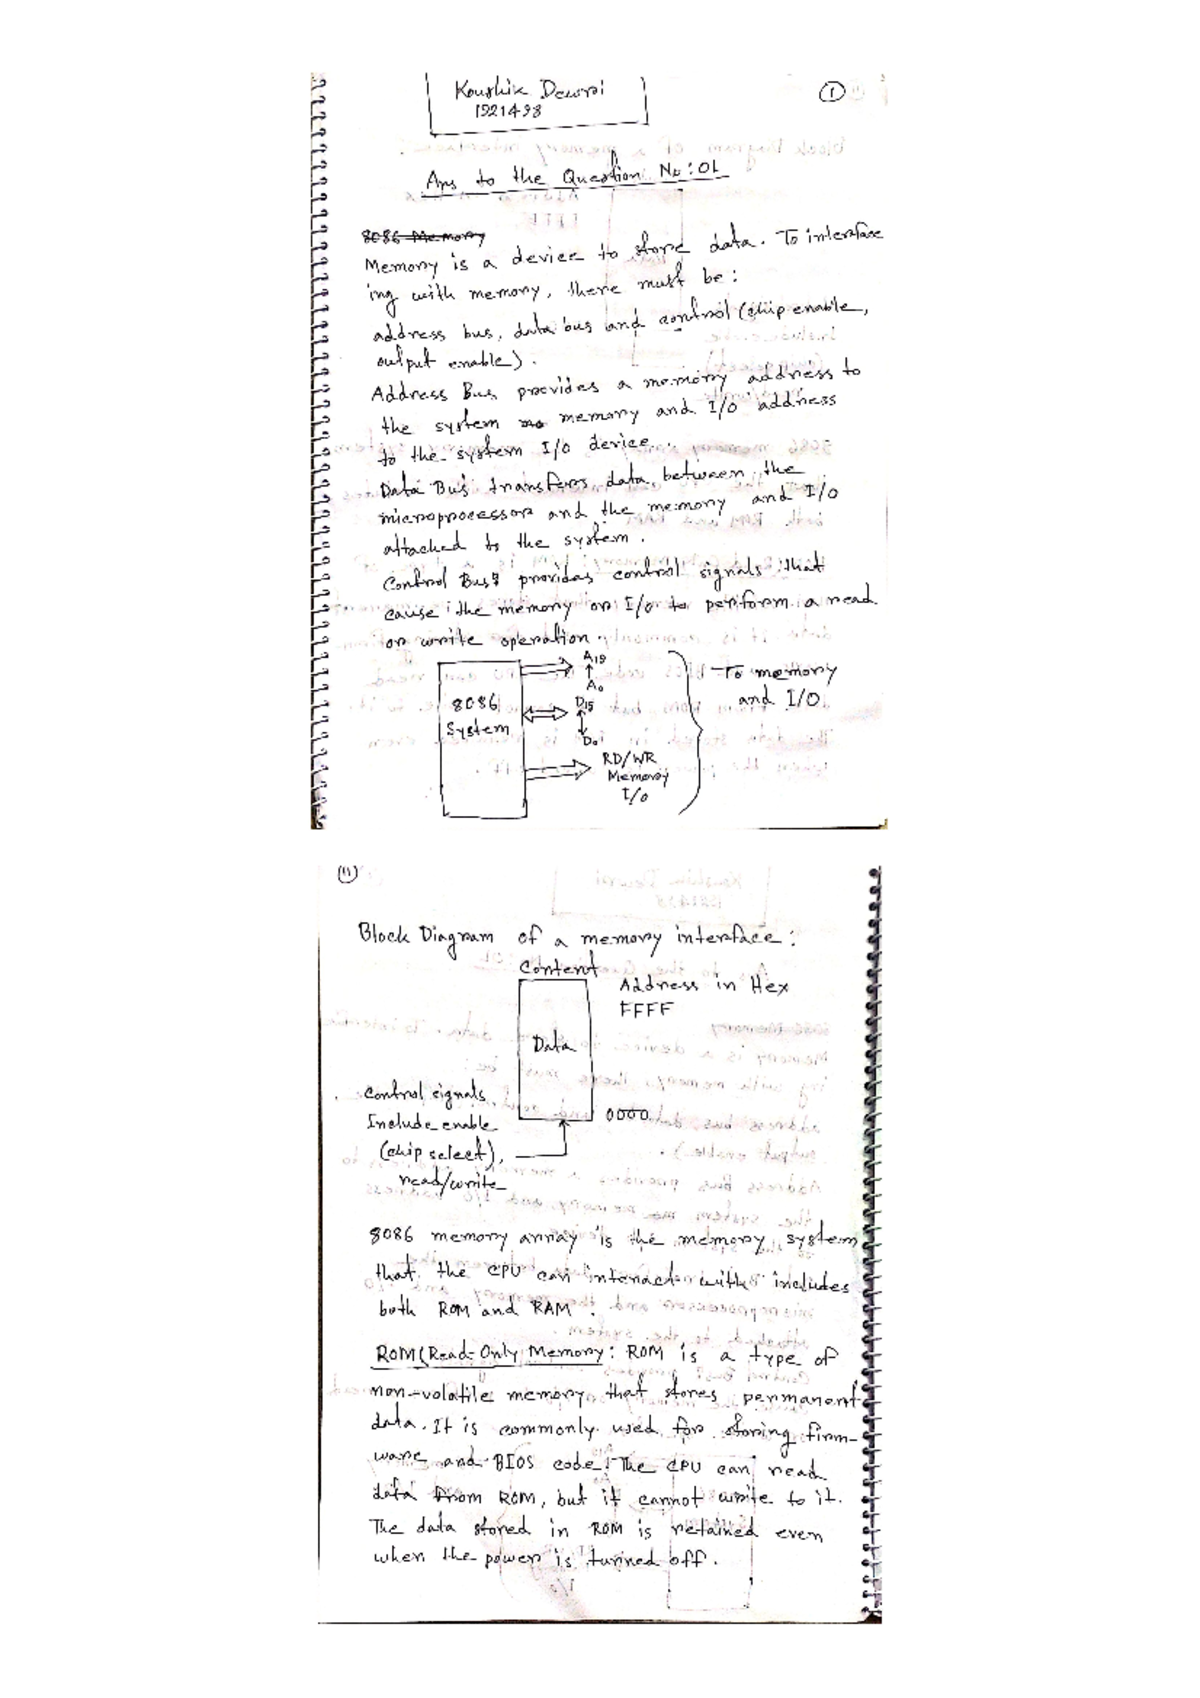 Koushik Dewri
1921498
1
Ans to the Question No: 01
8086 Memory
Memory is a device to store data. To interface
ing with memory, there must be:
address bus, data bus and control (chip enable,
output enable).
Address Bus provides a memory address to
the system mo memory and I/O address
to the system I/O device.
Data Bus transfers data between the
microprocessor and the memory and I/O
attached to the system.
Control Bus provides control signals that
cause the memory or I/O to perform a read
or write operation.
8086
System
A19
A0
D15
D0
RD/WR
Memory
I/O
To memory
and I/O
11
Block Diagram of a memory interface:
Content
Address in Hex
FFFF
Data
0000
Control signals
Include enable
(chip select),
read/write
8086 memory array is the memory system
that the CPU can interact with includes
both ROM and RAM.
ROM(Read-Only Memory: ROM is a type of
non-volatile memory that stores permanent
data. It is commonly used for storing firm-
ware and BIOS code. The CPU can read
data from ROM, but it cannot write to it.
The data stored in ROM is retained even
when the power is turned off.